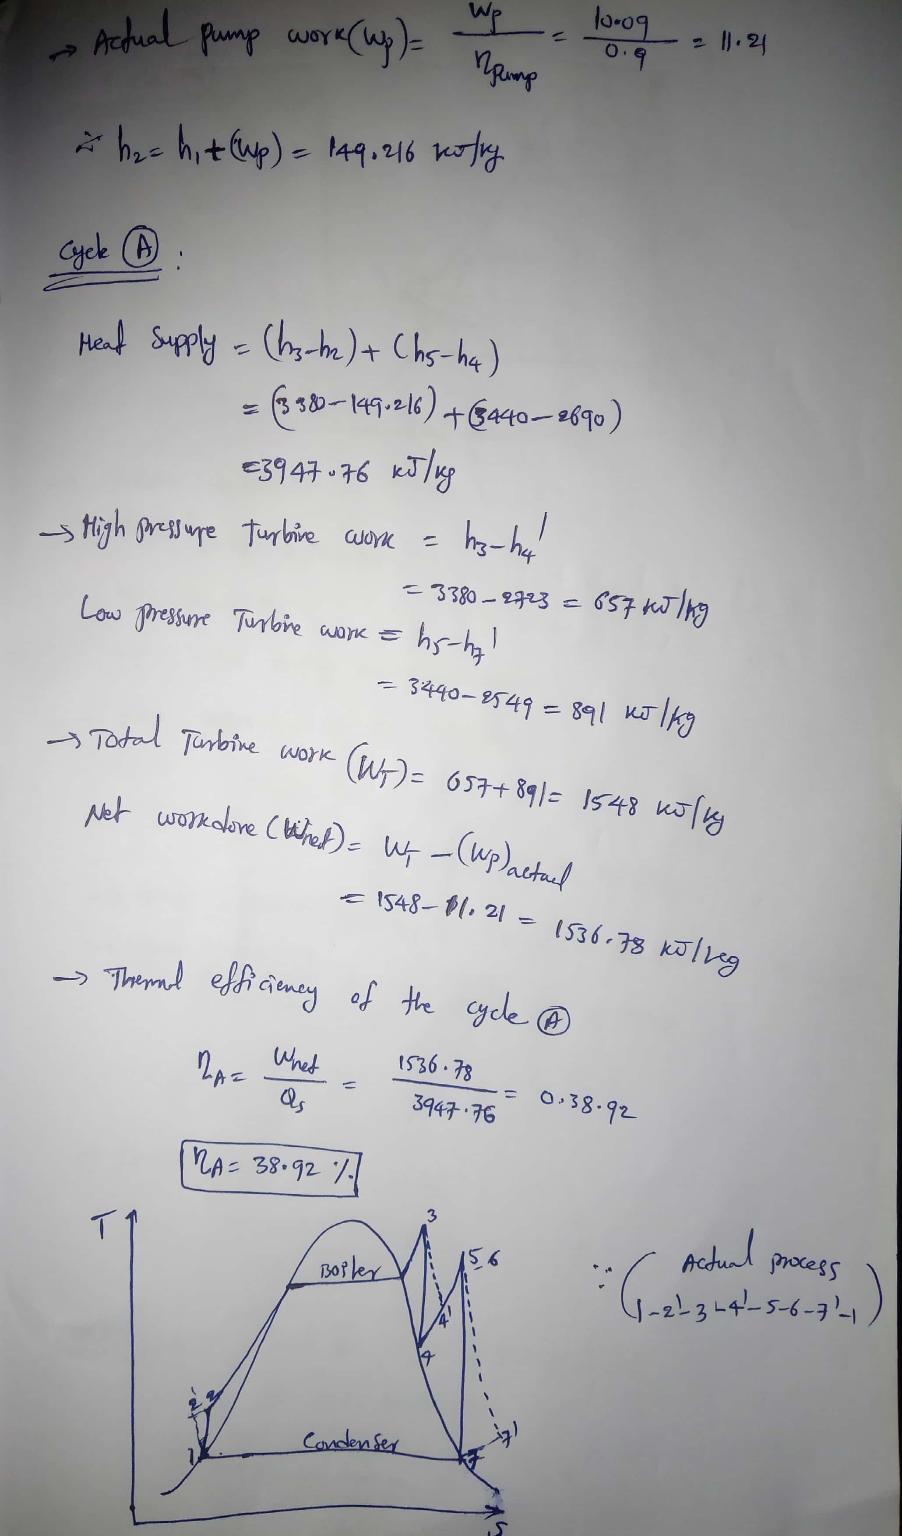 → Actual pump work (Wp) = Wp / ηPump = 10.09 / 0.9 = 11.21
∴ h2 = h1 + (Wp) = 149.216 kJ/kg
Cycle Ⓐ :
Heat Supply = (h3-h2) + (h5-h4)
= (3380-149.216) + (3440-2690)
=3947.76 kJ/kg
→ High pressure turbine work = h3-h4'
= 3380-2723 = 657 kJ/kg
Low pressure Turbine work = h5-h7'
= 3440-2549 = 891 kJ/kg
→ Total Turbine work (WT) = 657+891= 1548 kJ/kg
Net workdone (Wnet) = WT - (Wp)actual
= 1548-11.21 = 1536.78 kJ/kg
→ Thermal efficiency of the cycle Ⓐ
ηA = Wnet / Qs = 1536.78 / 3947.76 = 0.38.92
ηA = 38.92 %
T
3
5 6
Boiler
4'
4
2' 2
1
Condenser
7
7'
S
∵ (Actual process
1-2'-3-4'-5-6-7'-1)